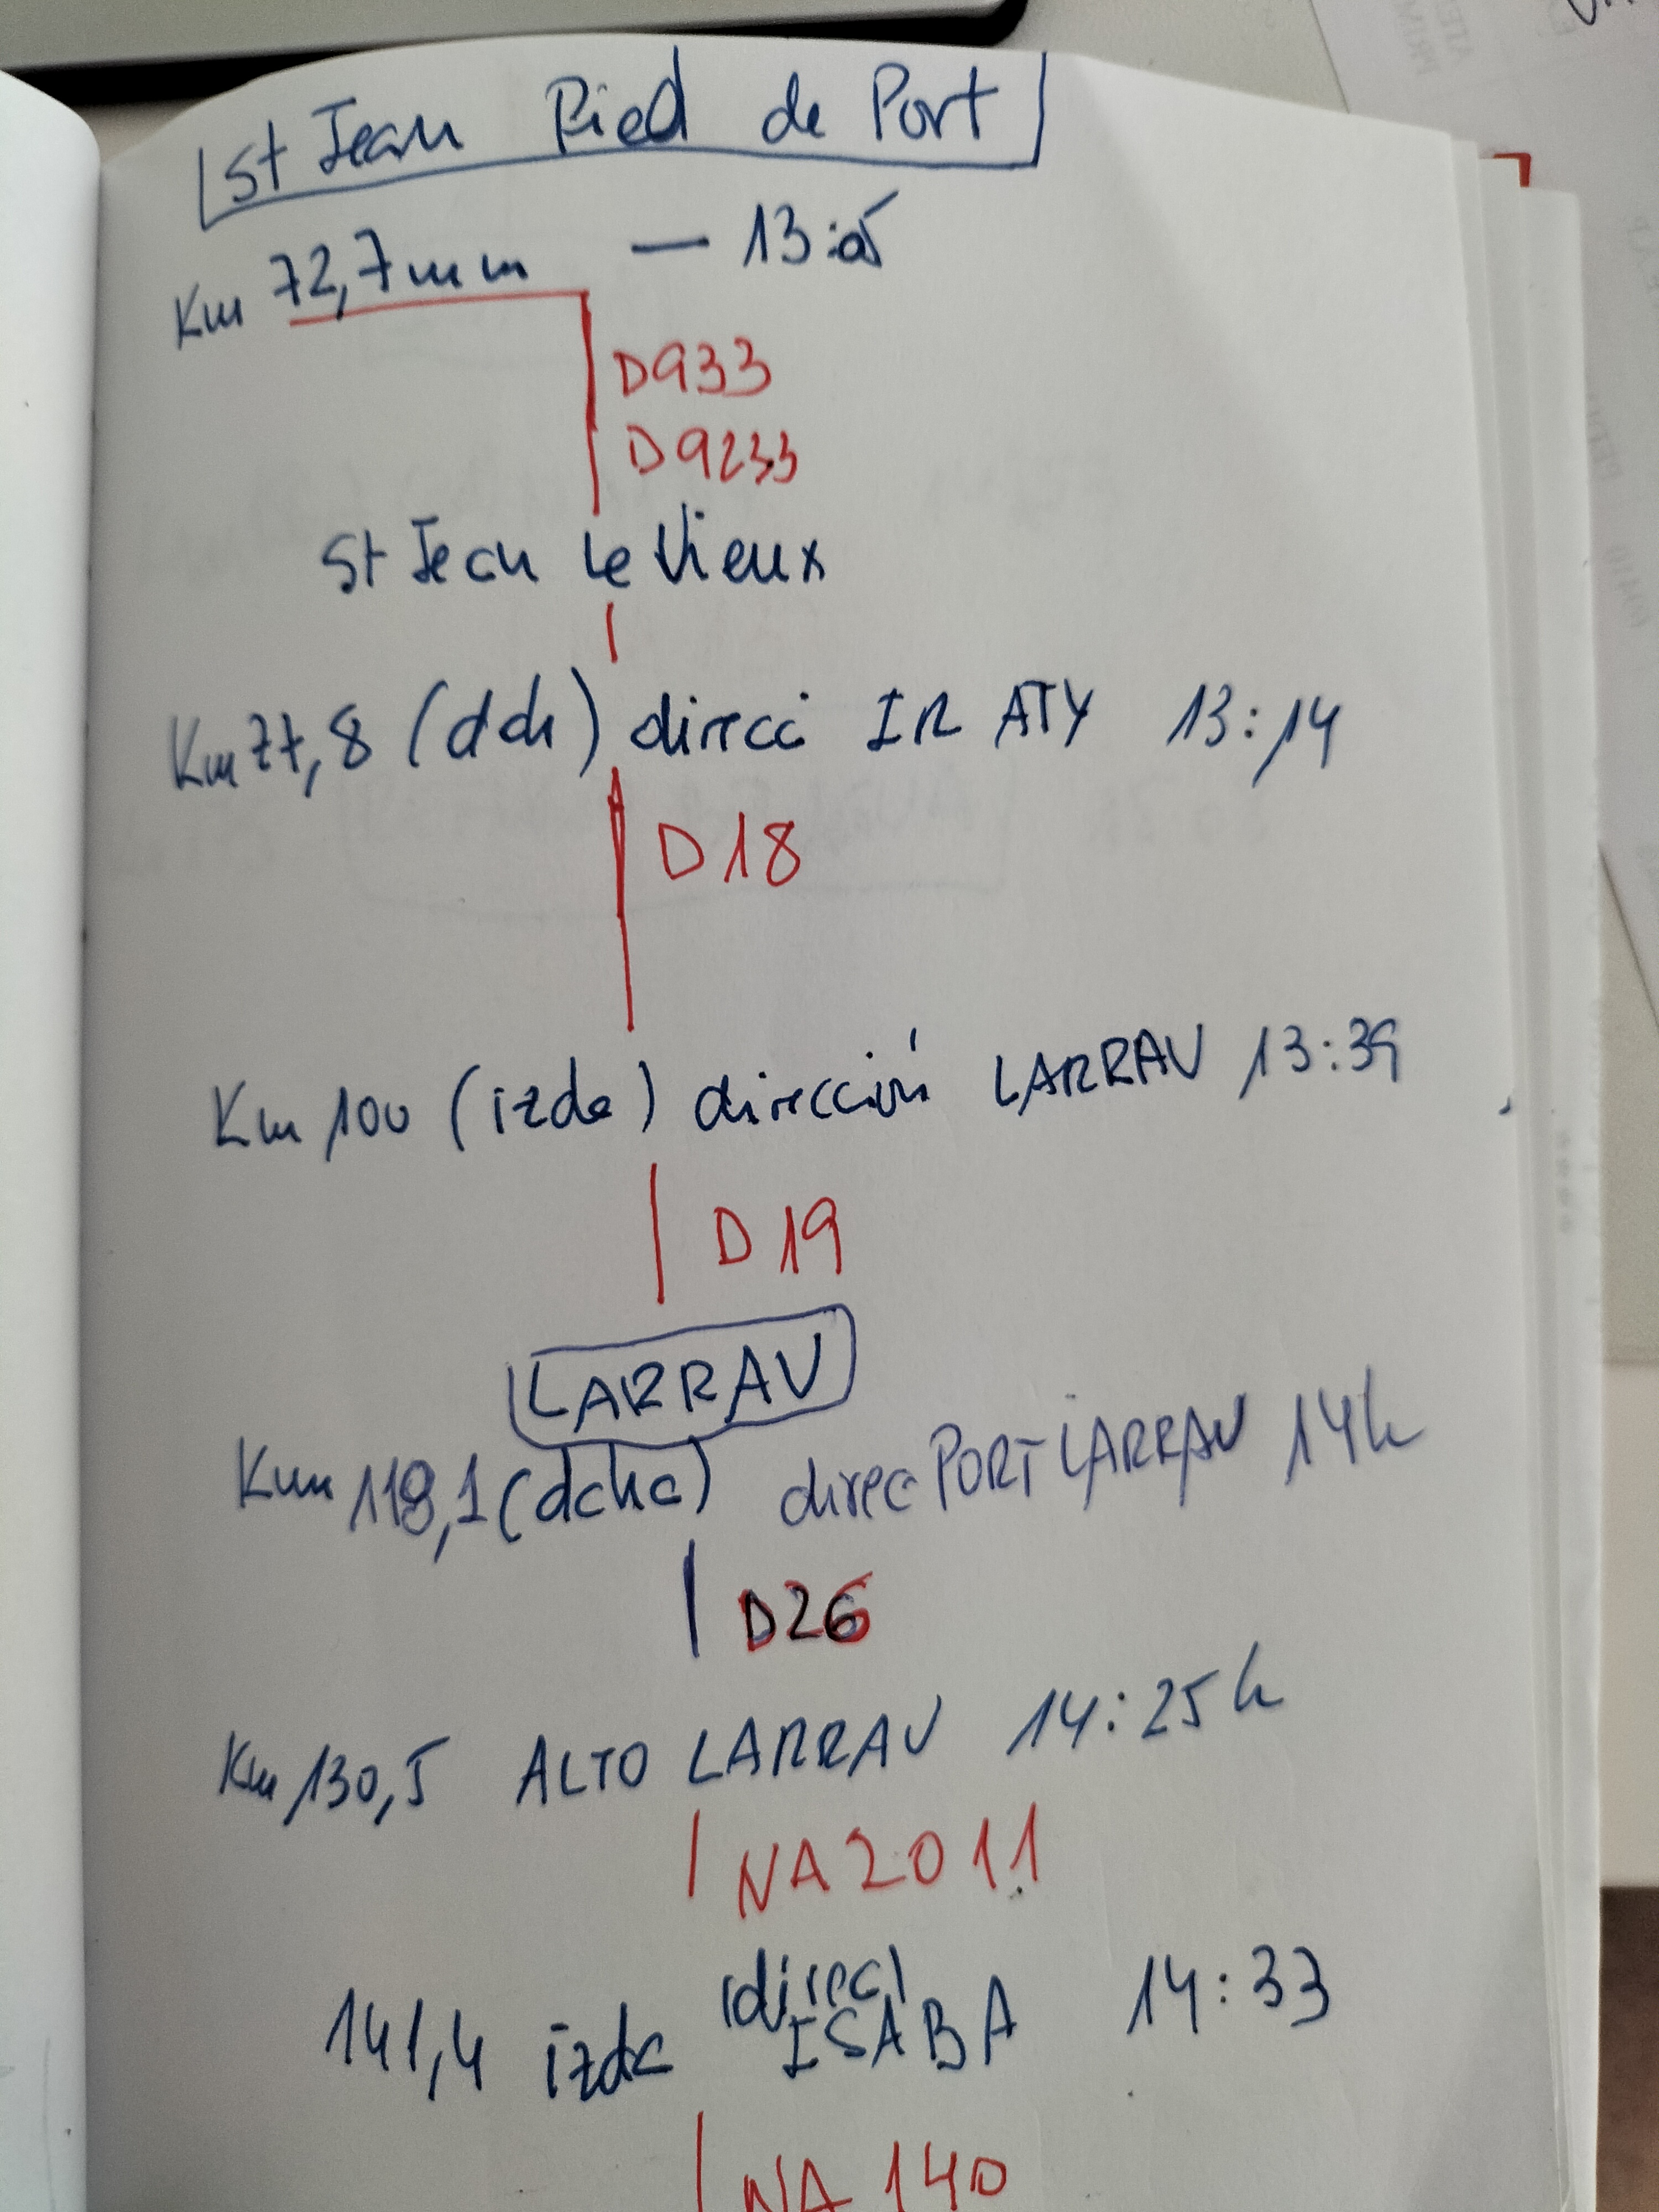 St Jean Pied de Port
Km 72,7 mm — 13:05
D933
D9233
St Jean Le Vieux
Km 77,8 (dch) direcc IRATY 13:14
D18
Km 100 (izda) dirección LARRAU 13:39
D19
LARRAU
Km 118,1 (dcha) direc PORT LARRAU 14h
D26
Km 130,5 ALTO LARRAU 14:25h
NA2011
(direc)
141,4 izda ISABA 14:33
NA 140